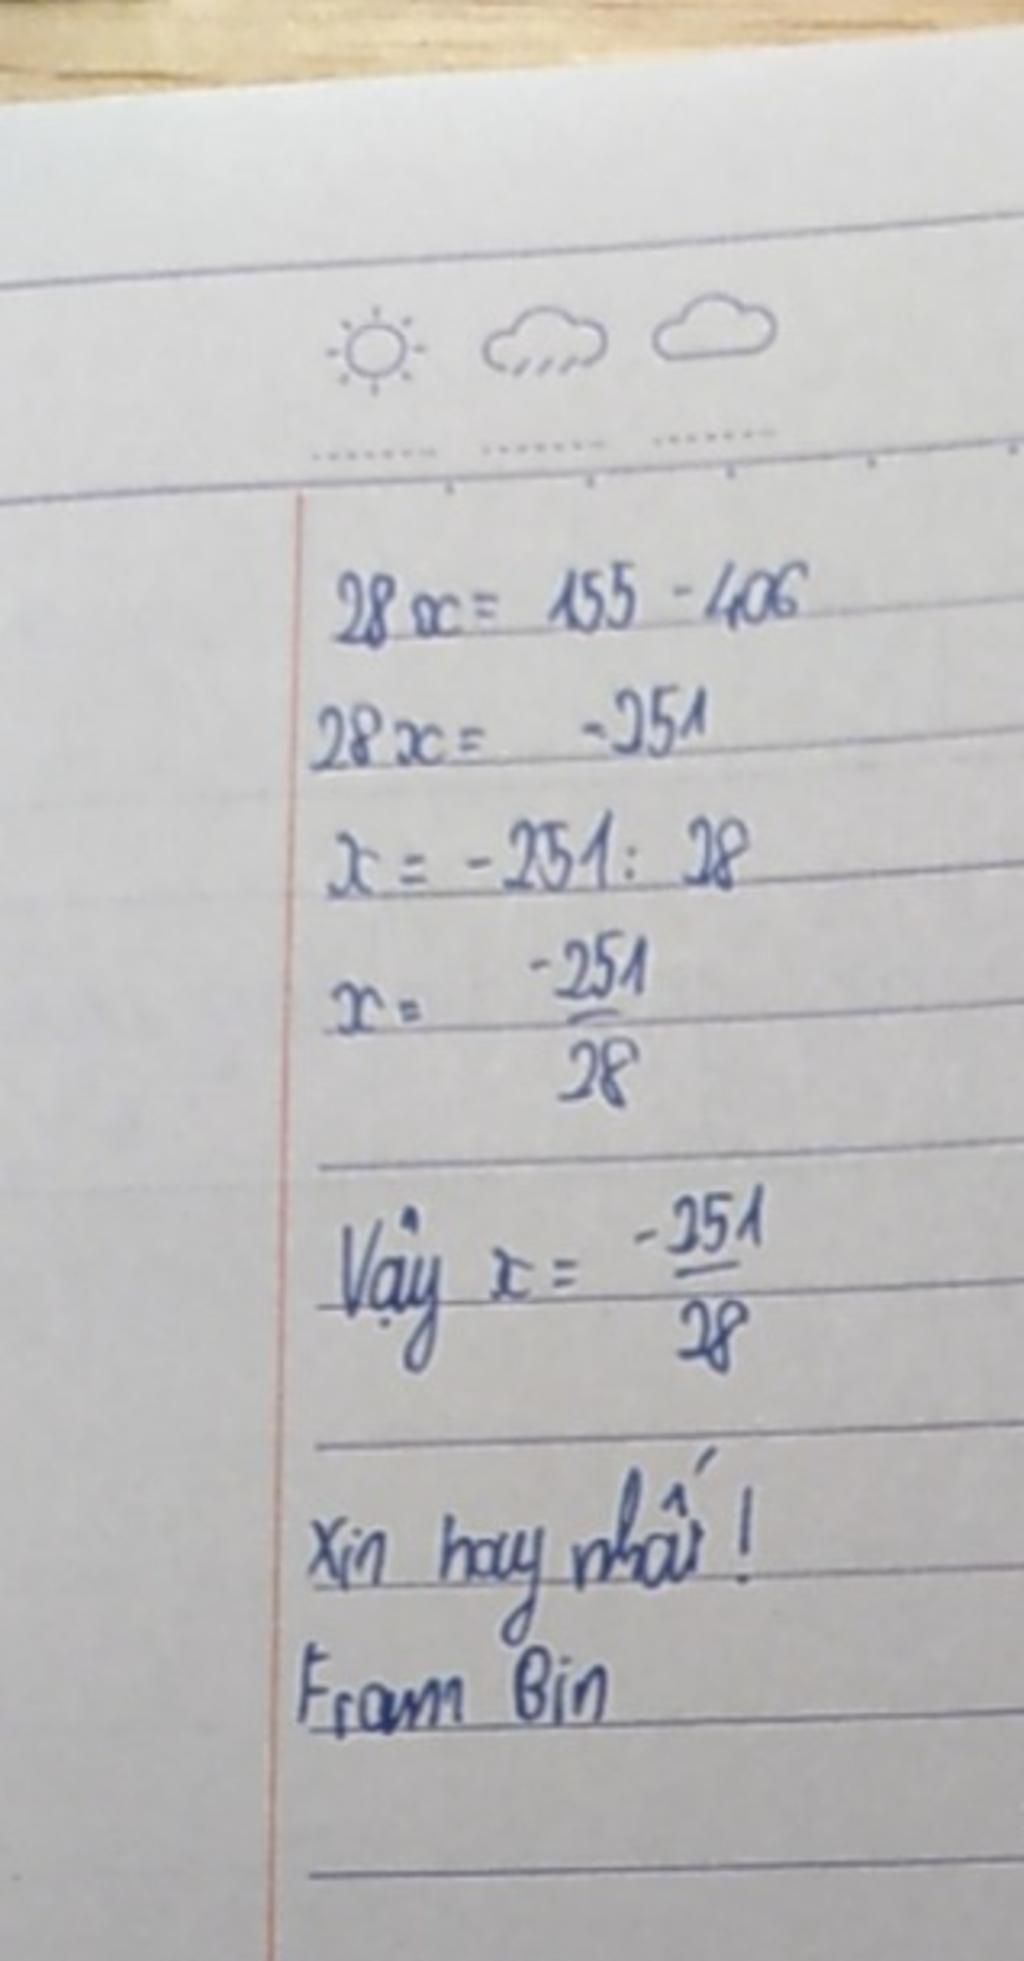 28x = 155 - 406
28x = -251
x = -251 : 28
x = -251/28
Vậy x = -251/28
Xin hay nhất !
From Bin